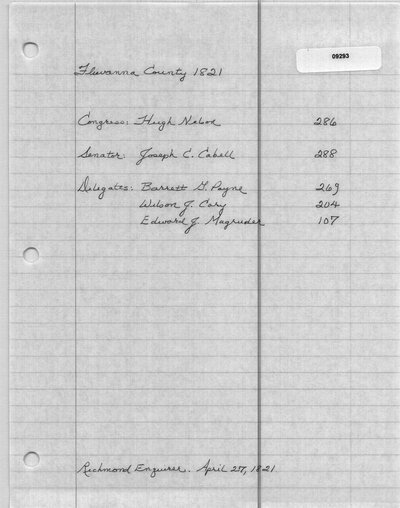 09293
Fluvanna County 1821
Congress: Hugh Nelson 286
Senator: Joseph C. Cabell 288
Delegates: Barrett G. Payne 269
Wilson J. Cary 204
Edward J. Magruder 107
Richmond Enquirer. April 27, 1821